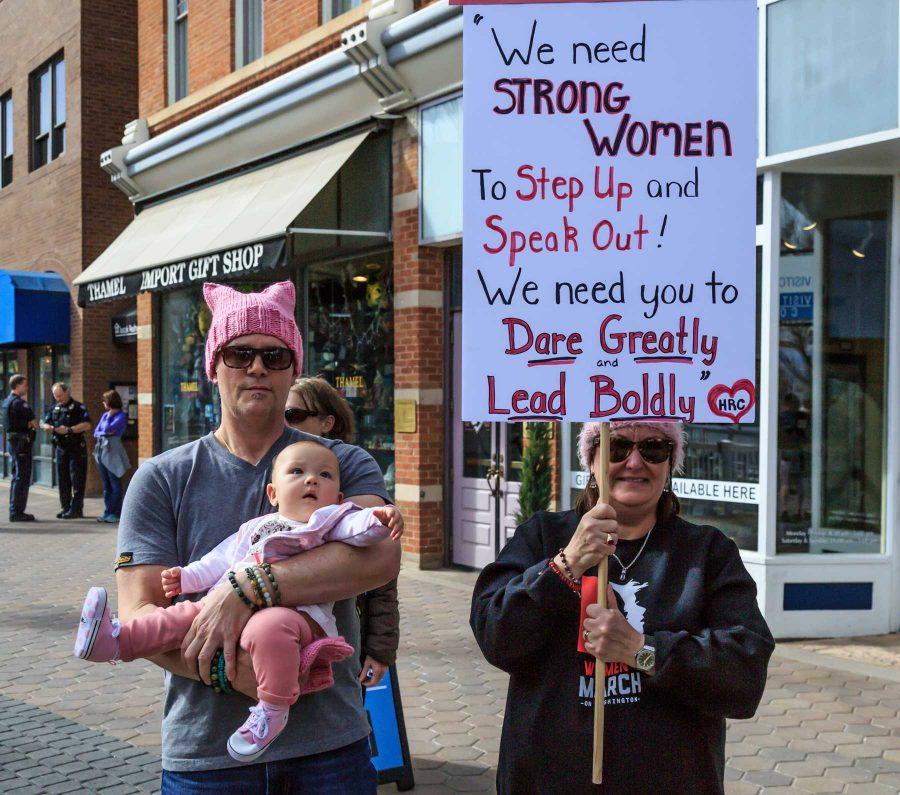 "We need
STRONG
WOMEN
To Step Up and
Speak Out!
We need you to
Dare Greatly
and
Lead Boldly"
HRC
THAMEL IMPORT GIFT SHOP
THAMEL
THAMEL
VISIT
AVAILABLE HERE
WOMEN'S
MARCH
-ON WASHINGTON-